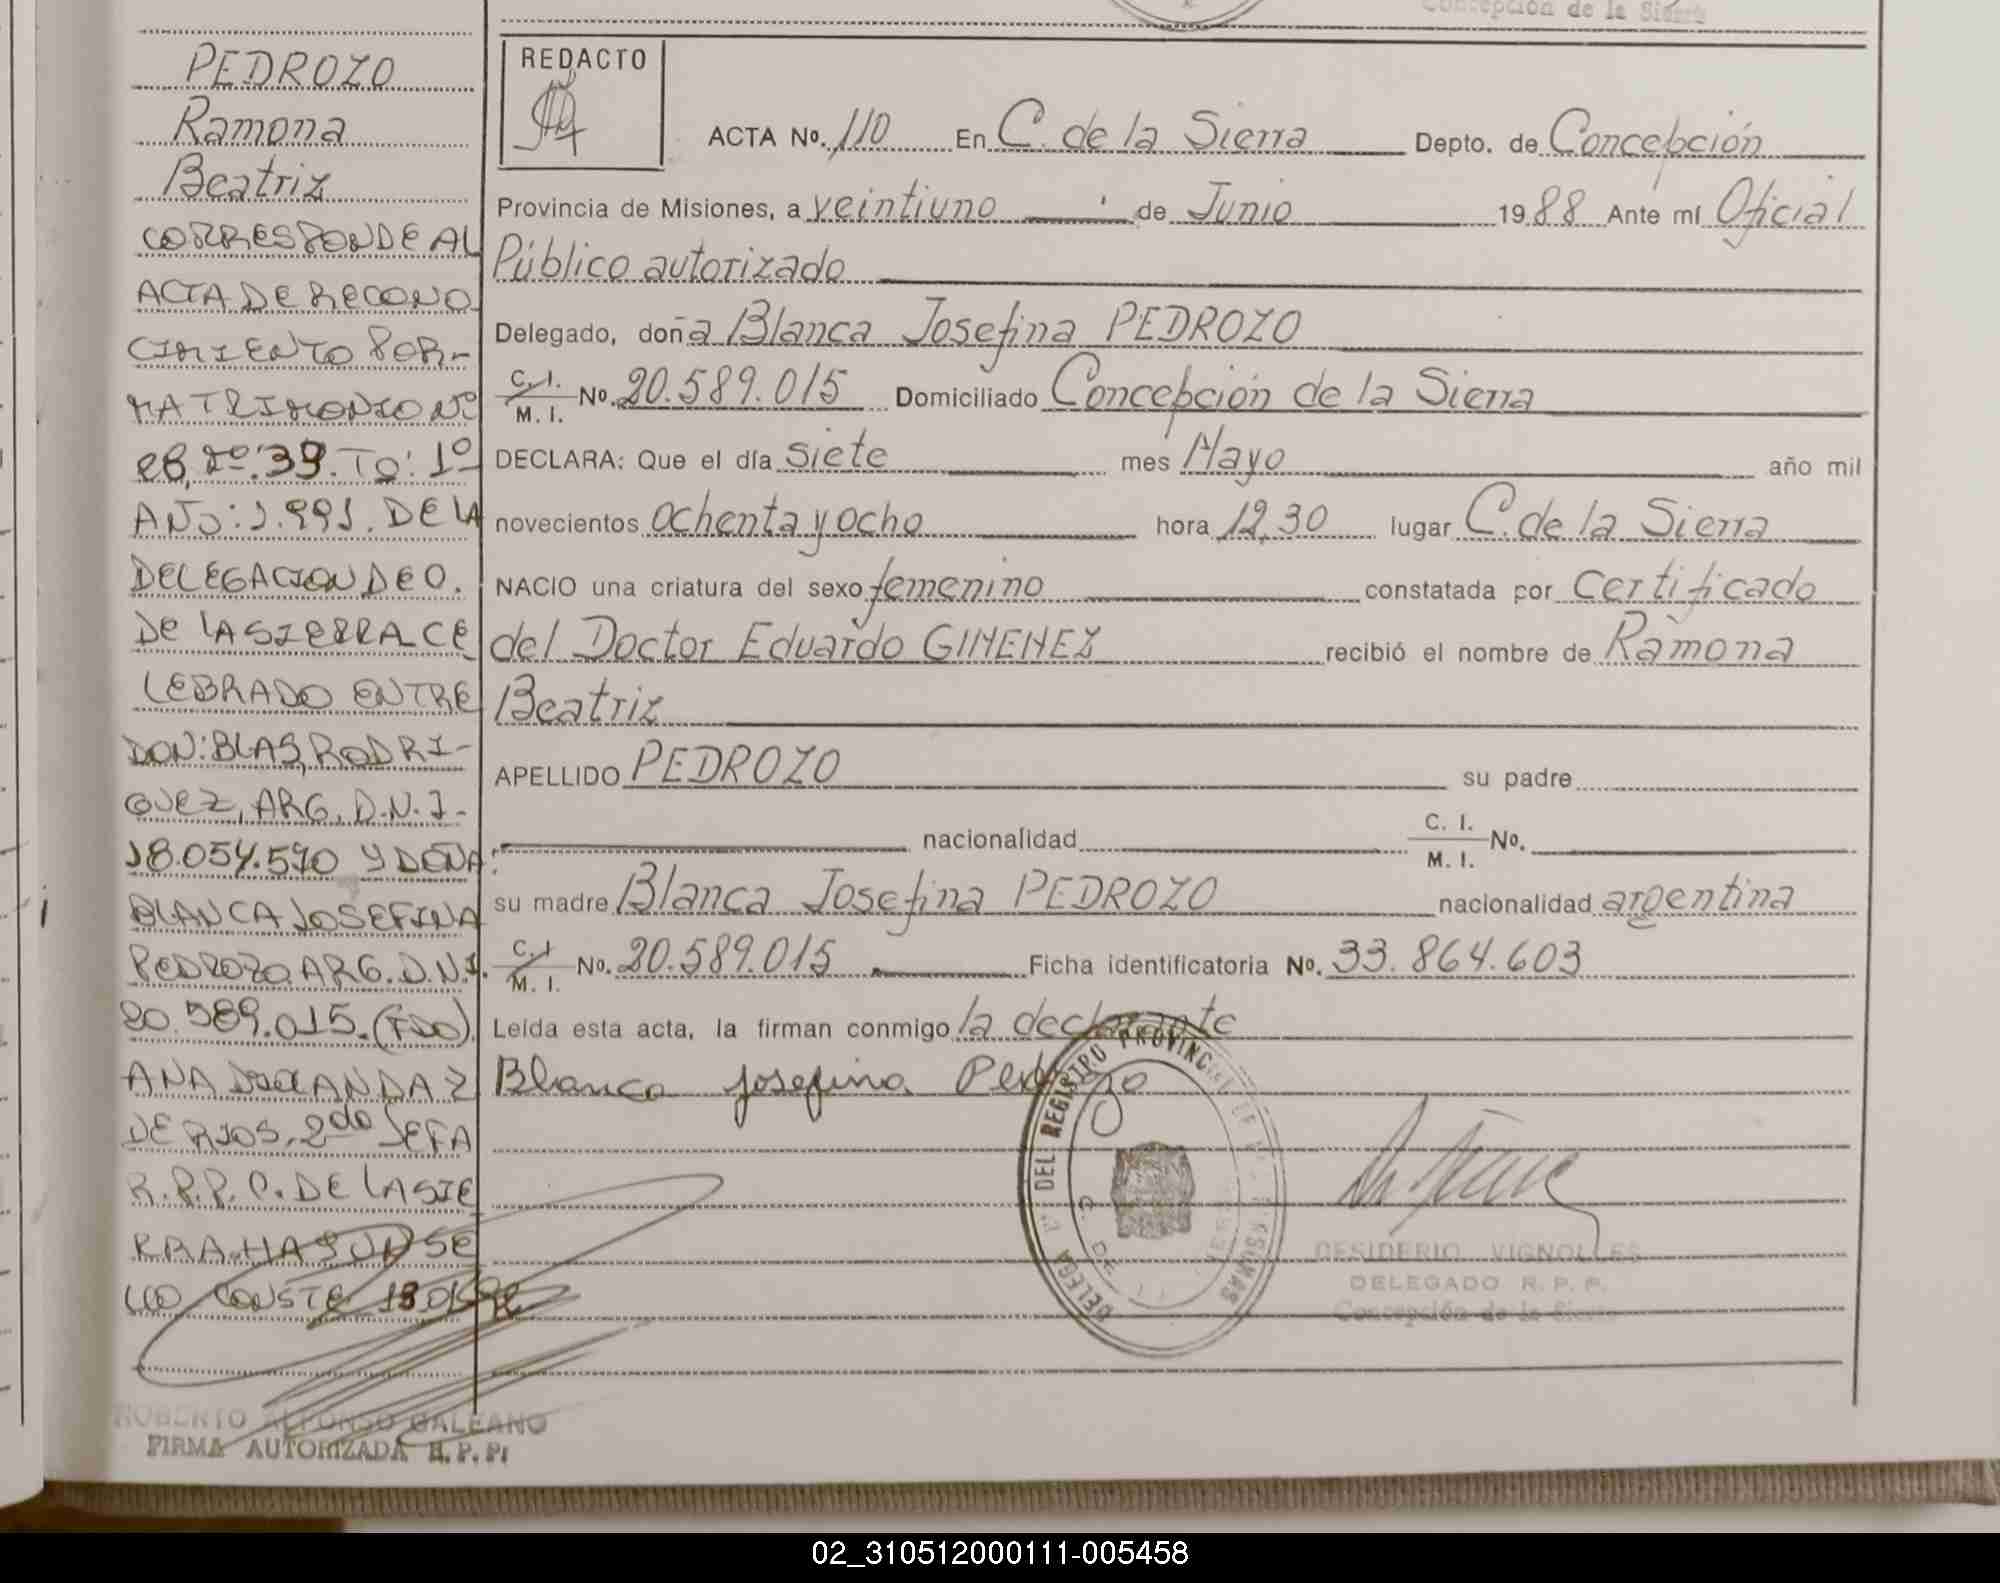 Concepción de la Sierra
PEDROZO
Ramona
Beatriz
CORRESPONDE AL
ACTA DE RECONO
CIMIENTO POR-
MATRIMONIO Nº
26, Fº: 39. Tº: 1º
AÑO: 1.991. DE LA
DELEGACION DE C.
DE LA SIERRA CE
LEBRADO ENTRE
DON: BLAS, RODRI-
GUEZ, ARG. D.N.I-
18.054.590 Y DOÑA:
BLANCA JOSEFINA
PEDROZO. ARG. D.N.I.
20.589.015. (FDO)
ANA Z
DE RIOS. 2do JEFA
R.P.P. C. DE LA SIE
RRA. HAY UN SE
LLO CONSTE
ROBERTO ALFONSO GALEANO
FIRMA AUTORIZADA R. P. P.
REDACTO
ACTA Nº. 110 En C. de la Sierra Depto. de Concepción
Provincia de Misiones, a veintiuno de Junio 1988 Ante mí Oficial
Público autorizado
Delegado, doña Blanca Josefina PEDROZO
C. I.
M. I. No. 20.589.015 Domiciliado Concepción de la Sierra
DECLARA: Que el día siete mes Mayo año mil
novecientos ochenta y ocho hora 12,30 lugar C. de la Sierra
NACIO una criatura del sexo femenino constatada por certificado
del Doctor Eduardo GIMENEZ recibió el nombre de Ramona
Beatriz
APELLIDO PEDROZO su padre
nacionalidad C. I.
M. I. No.
su madre Blanca Josefina PEDROZO nacionalidad argentina
C. I.
M. I. No. 20.589.015 Ficha identificatoria No. 33.864.603
Leída esta acta, la firman conmigo la declarante
Blanca Josefina Pedrozo
DELEGA DEL REGISTRO PROVINCIAL DE PERSONAS
DESIDERIO VIGNOLLES
DELEGADO R. P. P.
Concepción de la Sierra
02_310512000111-005458